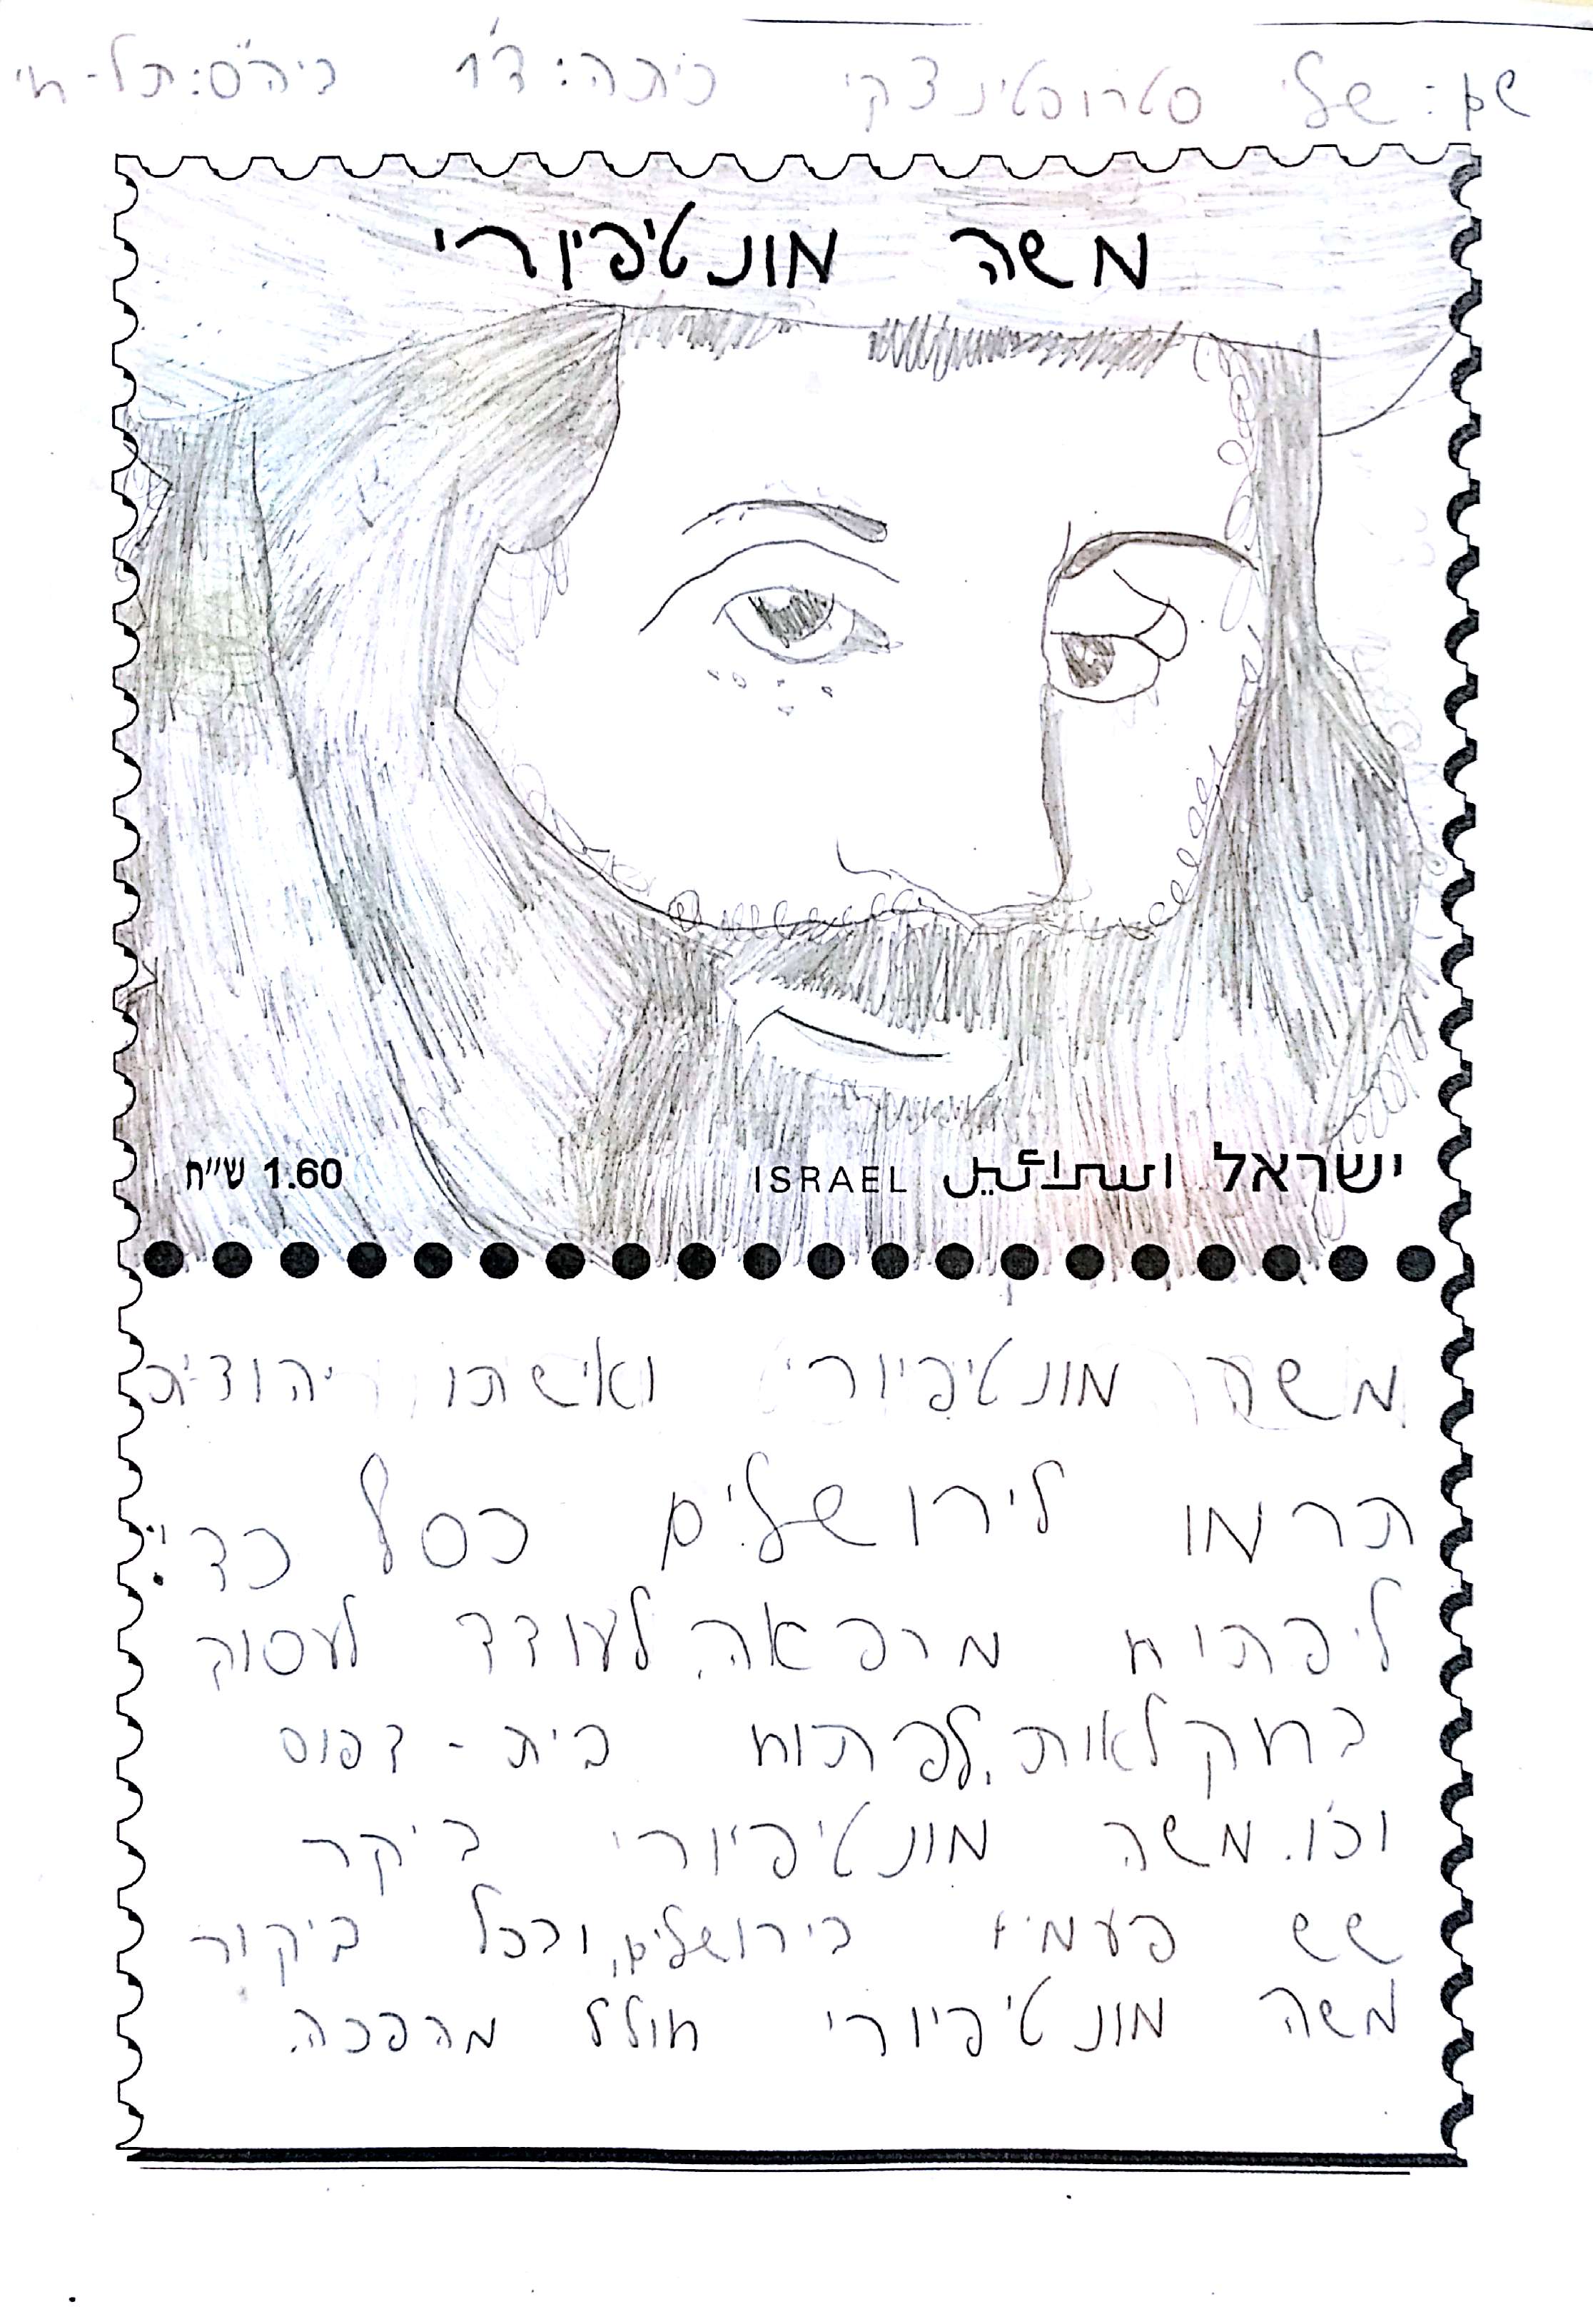 שם: שלי סטרוסטינצקי כיתה: ד'1 ביה"ס: תל-חי
משה מונטיפיורי
1.60 ש"ח ISRAEL اسرائيل ישראל
משה מונטיפיורי ואישתו יהודית
תרמו לירושלים כסף כדי:
ליפתוח מרפאה, לעודד לעסוק
בחקלאות, לפתוח בית-דפוס
וכו'. משה מונטיפיורי ביקר
שש פעמים בירושלים, ובכל ביקור
משה מונטיפיורי חולל מהפכה.